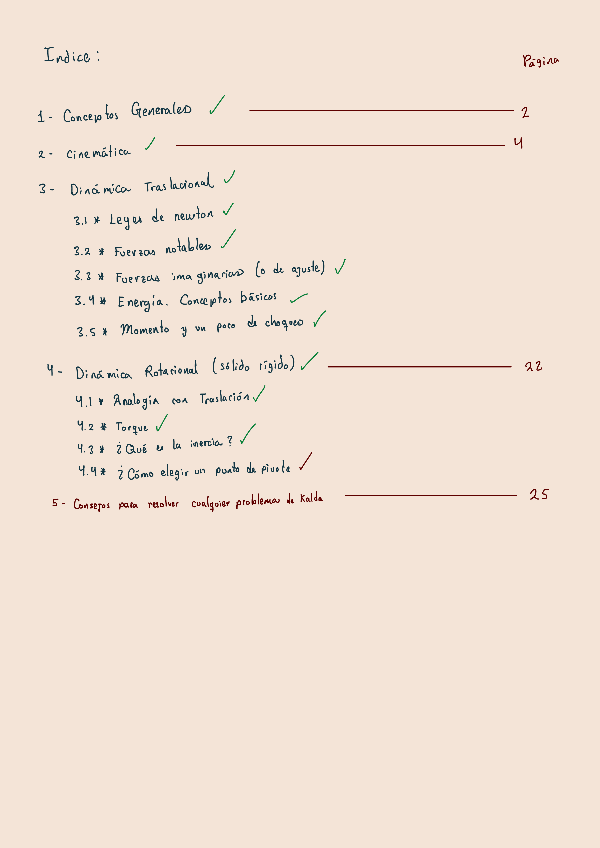 Indice:
Página
1- Conceptos Generales 2
2- Cinemática 4
3- Dinámica Traslacional
3.1 * Leyes de newton
3.2 * Fuerzas notables
3.3 * Fuerzas imaginarias (o de ajuste)
3.4 * Energía. Conceptos básicos
3.5 * Momento y un poco de choques
4- Dinámica Rotacional (sólido rígido) 22
4.1 * Analogía con Traslación
4.2 * Torque
4.3 * ¿Qué es la inercia?
4.4 * ¿Cómo elegir un punto de pivote
5- Consejos para resolver cualquier problemas de Kalda 25